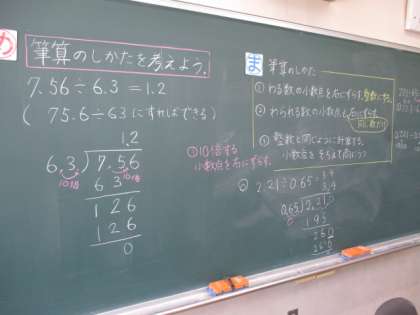 め
筆算のしかたを考えよう。
7.56÷6.3=1.2
(75.6÷63にすればできる)
1.2
6.3)7.5.6
10倍 10倍
63
126
126
0
①10倍する
小数点を右にずらす。
ま
筆算のしかた
①わる数の小数点を右にずらす。整数にする。
②わられる数の小数点も右にずらす。
同じ数だけ
③整数と同じように計算する。
②2.21÷0.65=3.4
3.4
0.65)2.21
195
260
260
0